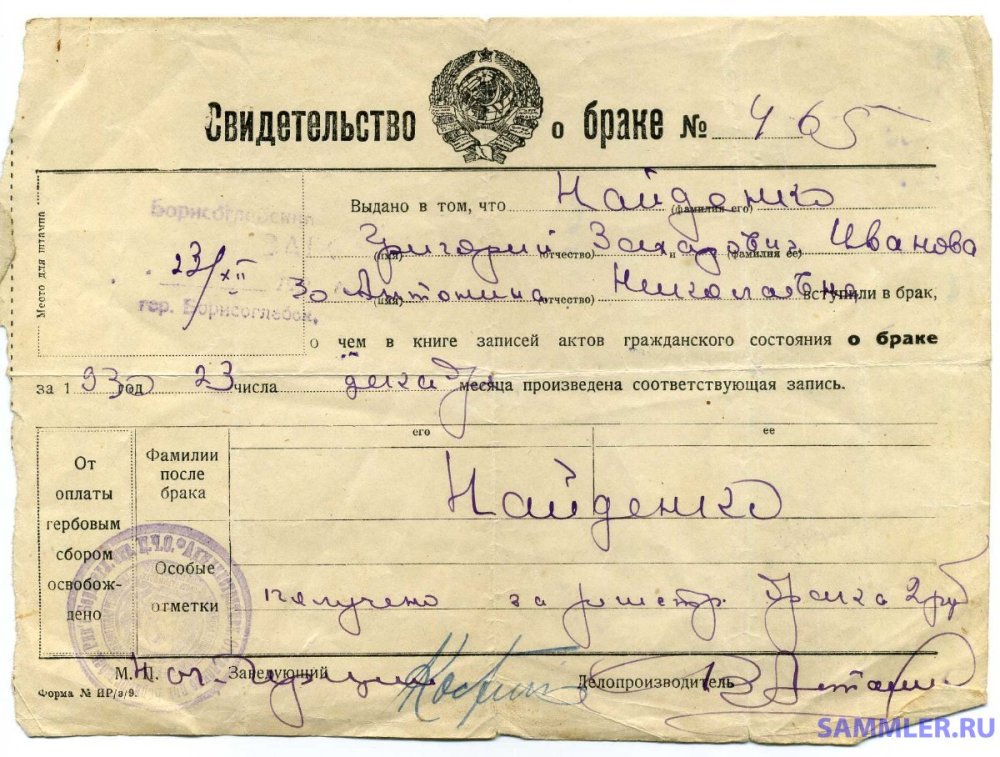 Свидетельство о браке № 465
Место для штампа
Борисоглебский
ЗАГС
23/XII 30
гор. Борисоглебск,
Выдано в том, что Найденко
(фамилия его)
Григорий Захарович и Иванова
(имя) (отчество) (фамилия ее)
Антонина Николаевна вступили в брак,
(имя) (отчество)
о чем в книге записей актов гражданского состояния о браке
за 1930 год 23 числа декабря месяца произведена соответствующая запись.
От оплаты гербовым сбором освобождено
Фамилии после брака
его ее
Найденко
Особые отметки
получено за регистр. брака 2 руб
М. П. Заведующий Делопроизводитель
Форма № ИР/з/9.
SAMMLER.RU